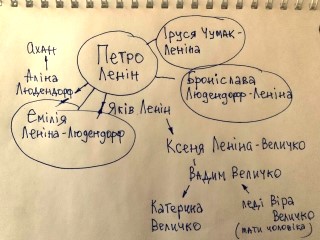 Ахан
Петро
Ленін
Груся Чумак-
Леніна
Аліна
Людендорф
Броніслава
Людендорф-Леніна
Емілія
Леніна-Людендорф
Яків Ленін
Ксеня Леніна-Величко
Вадим Величко
Катерина
Величко
леді Віра
Величко
(мати чоловіка)